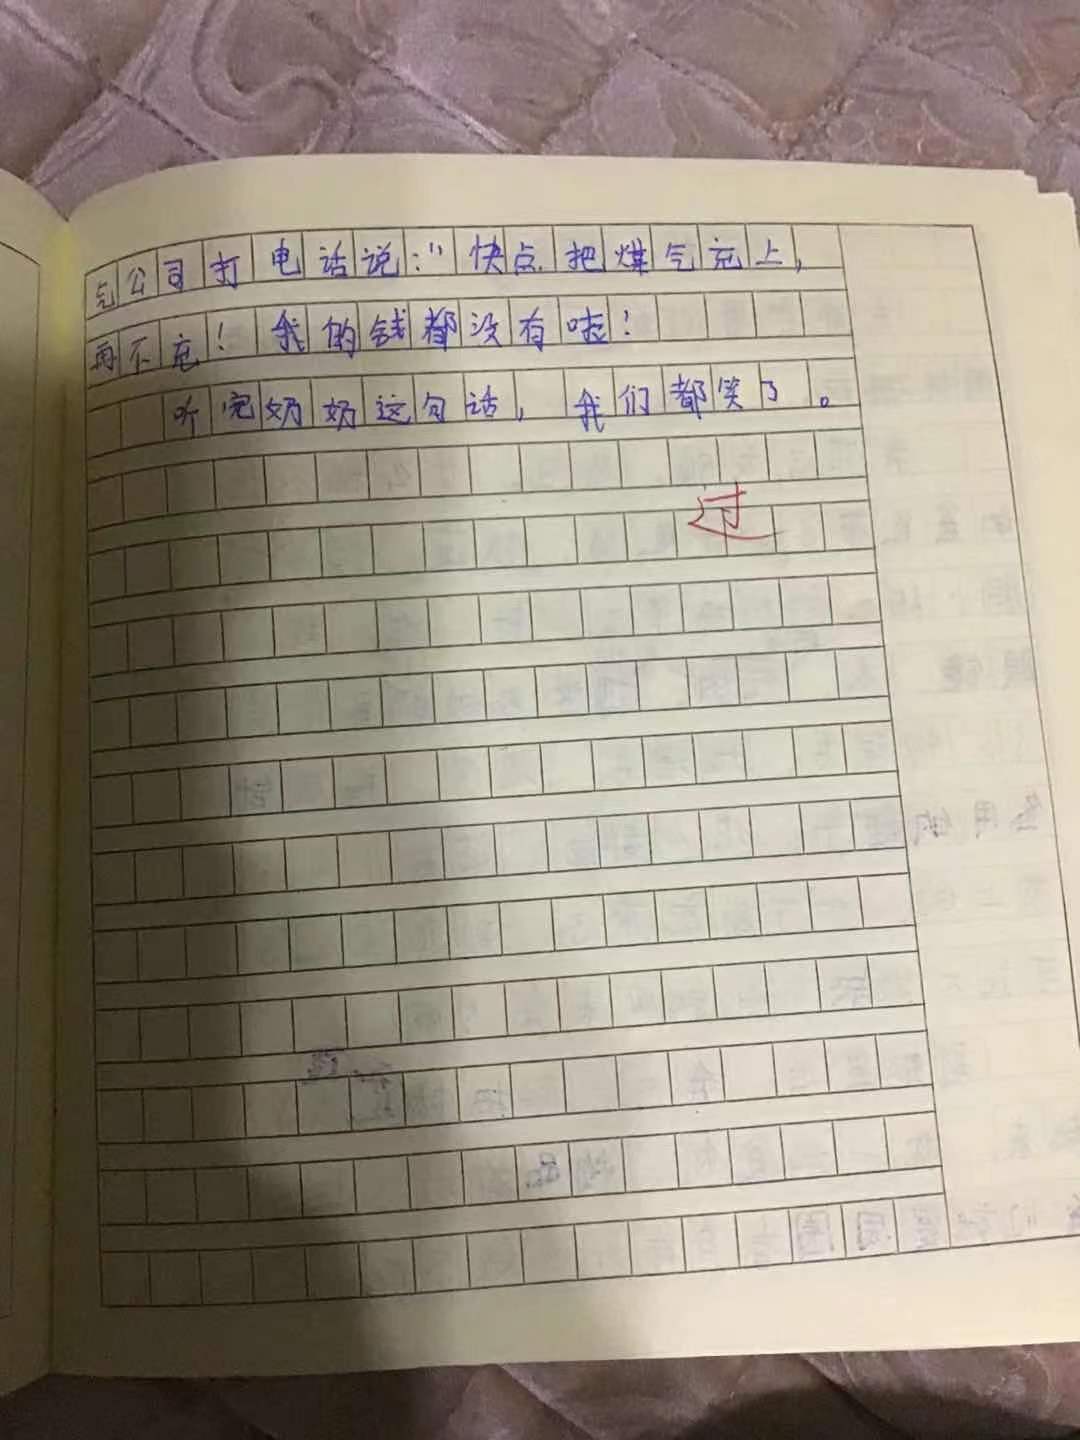 气公司打电话说:"快点把煤气充上,
再不充!我的钱都没有啦!
听完奶奶这句话,我们都笑了。
过